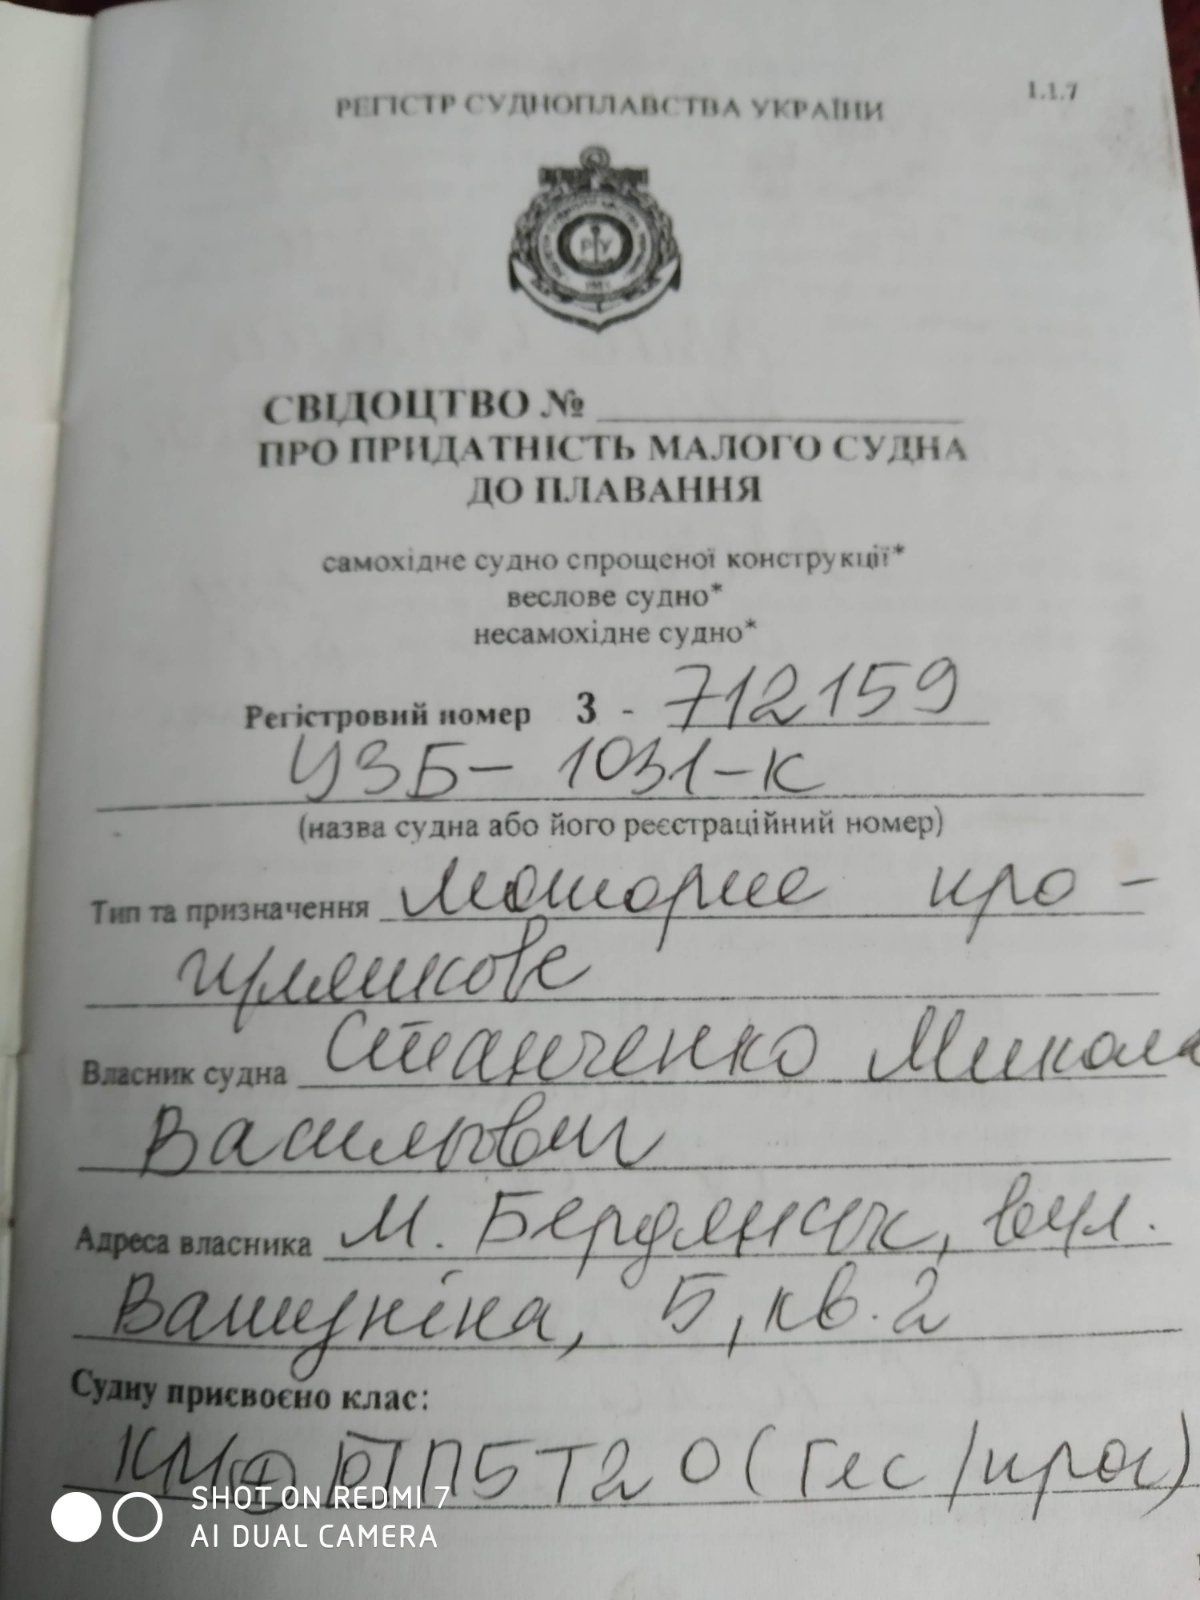 1.1.7
РЕГІСТР СУДНОПЛАВСТВА УКРАЇНИ
РУ
СВІДОЦТВО №
ПРО ПРИДАТНІСТЬ МАЛОГО СУДНА
ДО ПЛАВАННЯ
самохідне судно спрощеної конструкції*
веслове судно*
несамохідне судно*
Регістровий номер 3 - 712159
УЗБ - 1031-К
(назва судна або його реєстраційний номер)
Тип та призначення моторне про-
гулянкове
Власник судна Станченко Микола
Васильович
Адреса власника м. Бердянськ, вул.
Ващуніна, 5, кв. 2
Судну присвоєно клас:
SHOT ON REDMI 7
AI DUAL CAMERA